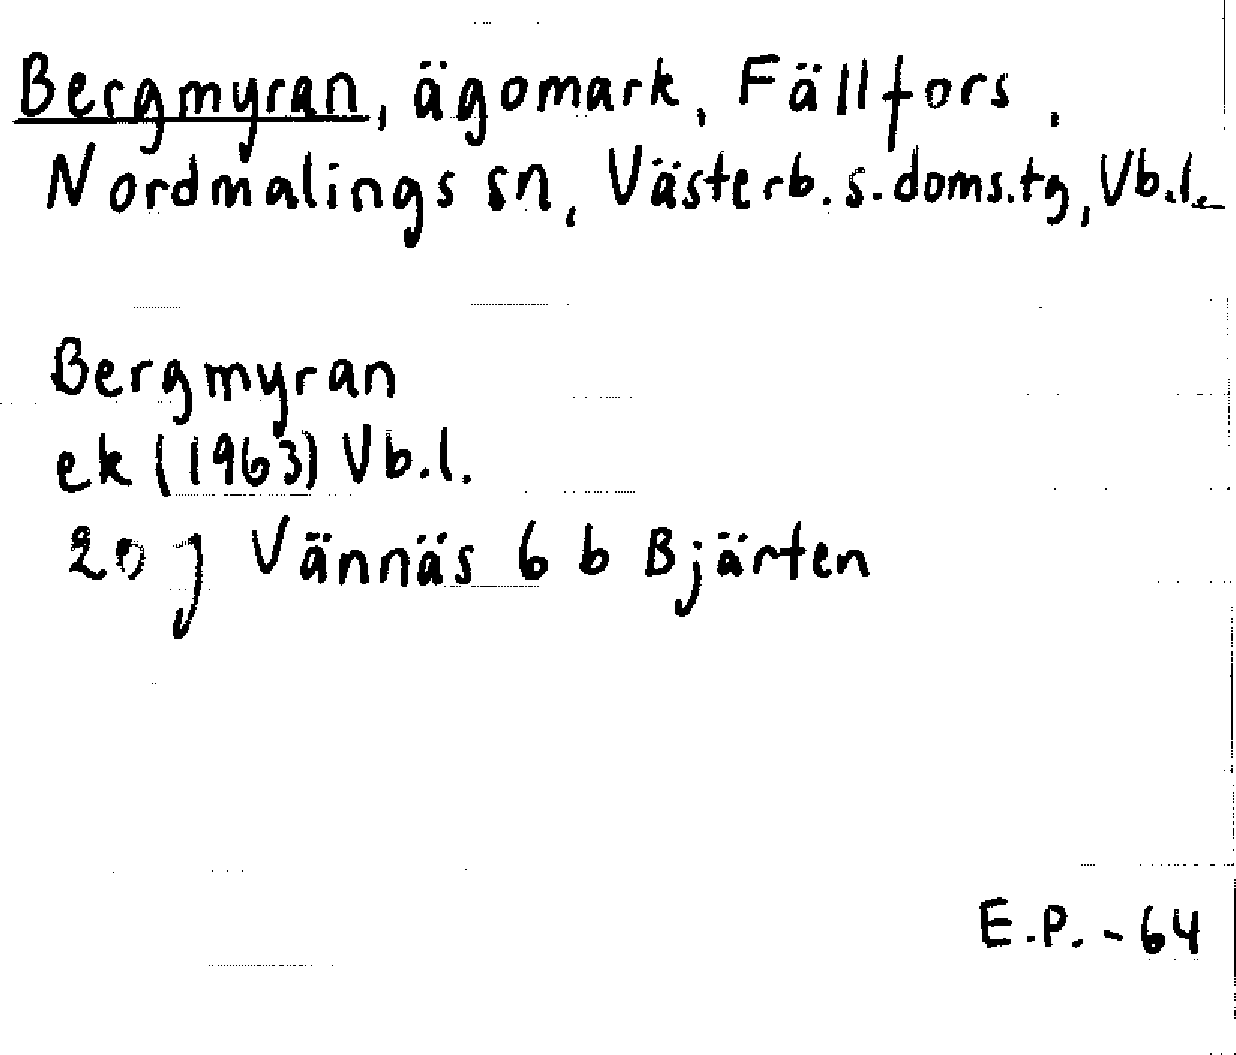 Bergmyran, ägomark, Fällfors,
Nordmalings sn, Västerb. s. doms.tg, Vb.l.
Bergmyran
ek (1963) Vb.l.
20 J Vännäs 6 b Bjärten
E.P. - 64